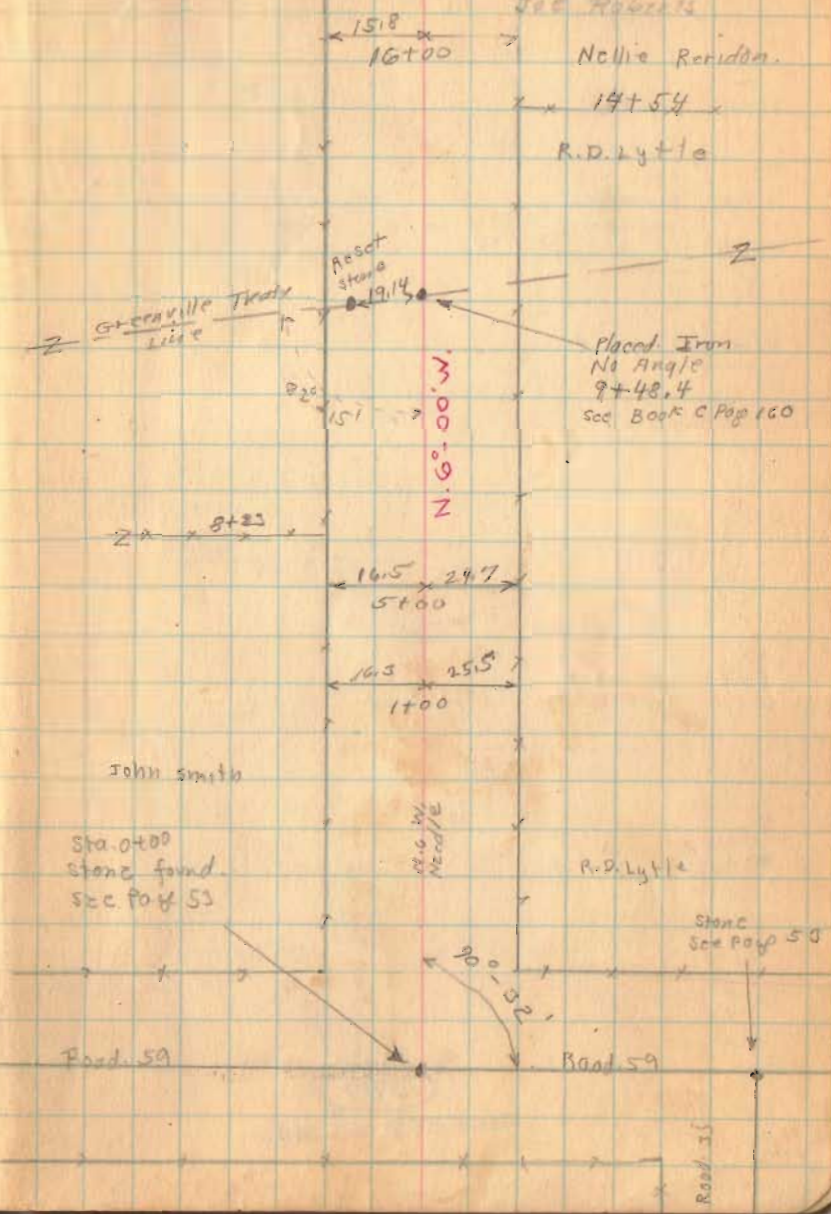 15.8
16+00
Nellie Reridon.
14+54
R.D. Lytle
Reset
stone
19.14
Z Greenville Treaty
Line
Z
Placed Iron
No Angle
9+48.4
see Book C Page 160
82°
15.1
N.6°-00'W.
Z 8+23
16.5 24.7
5+00
16.3 25.5
1+00
John Smith
N.6 W.
Needle
Sta. 0+00
stone found.
see Page 53
R.D. Lytle
Stone
see Page 53
90°-32'
Road 59
Road 59